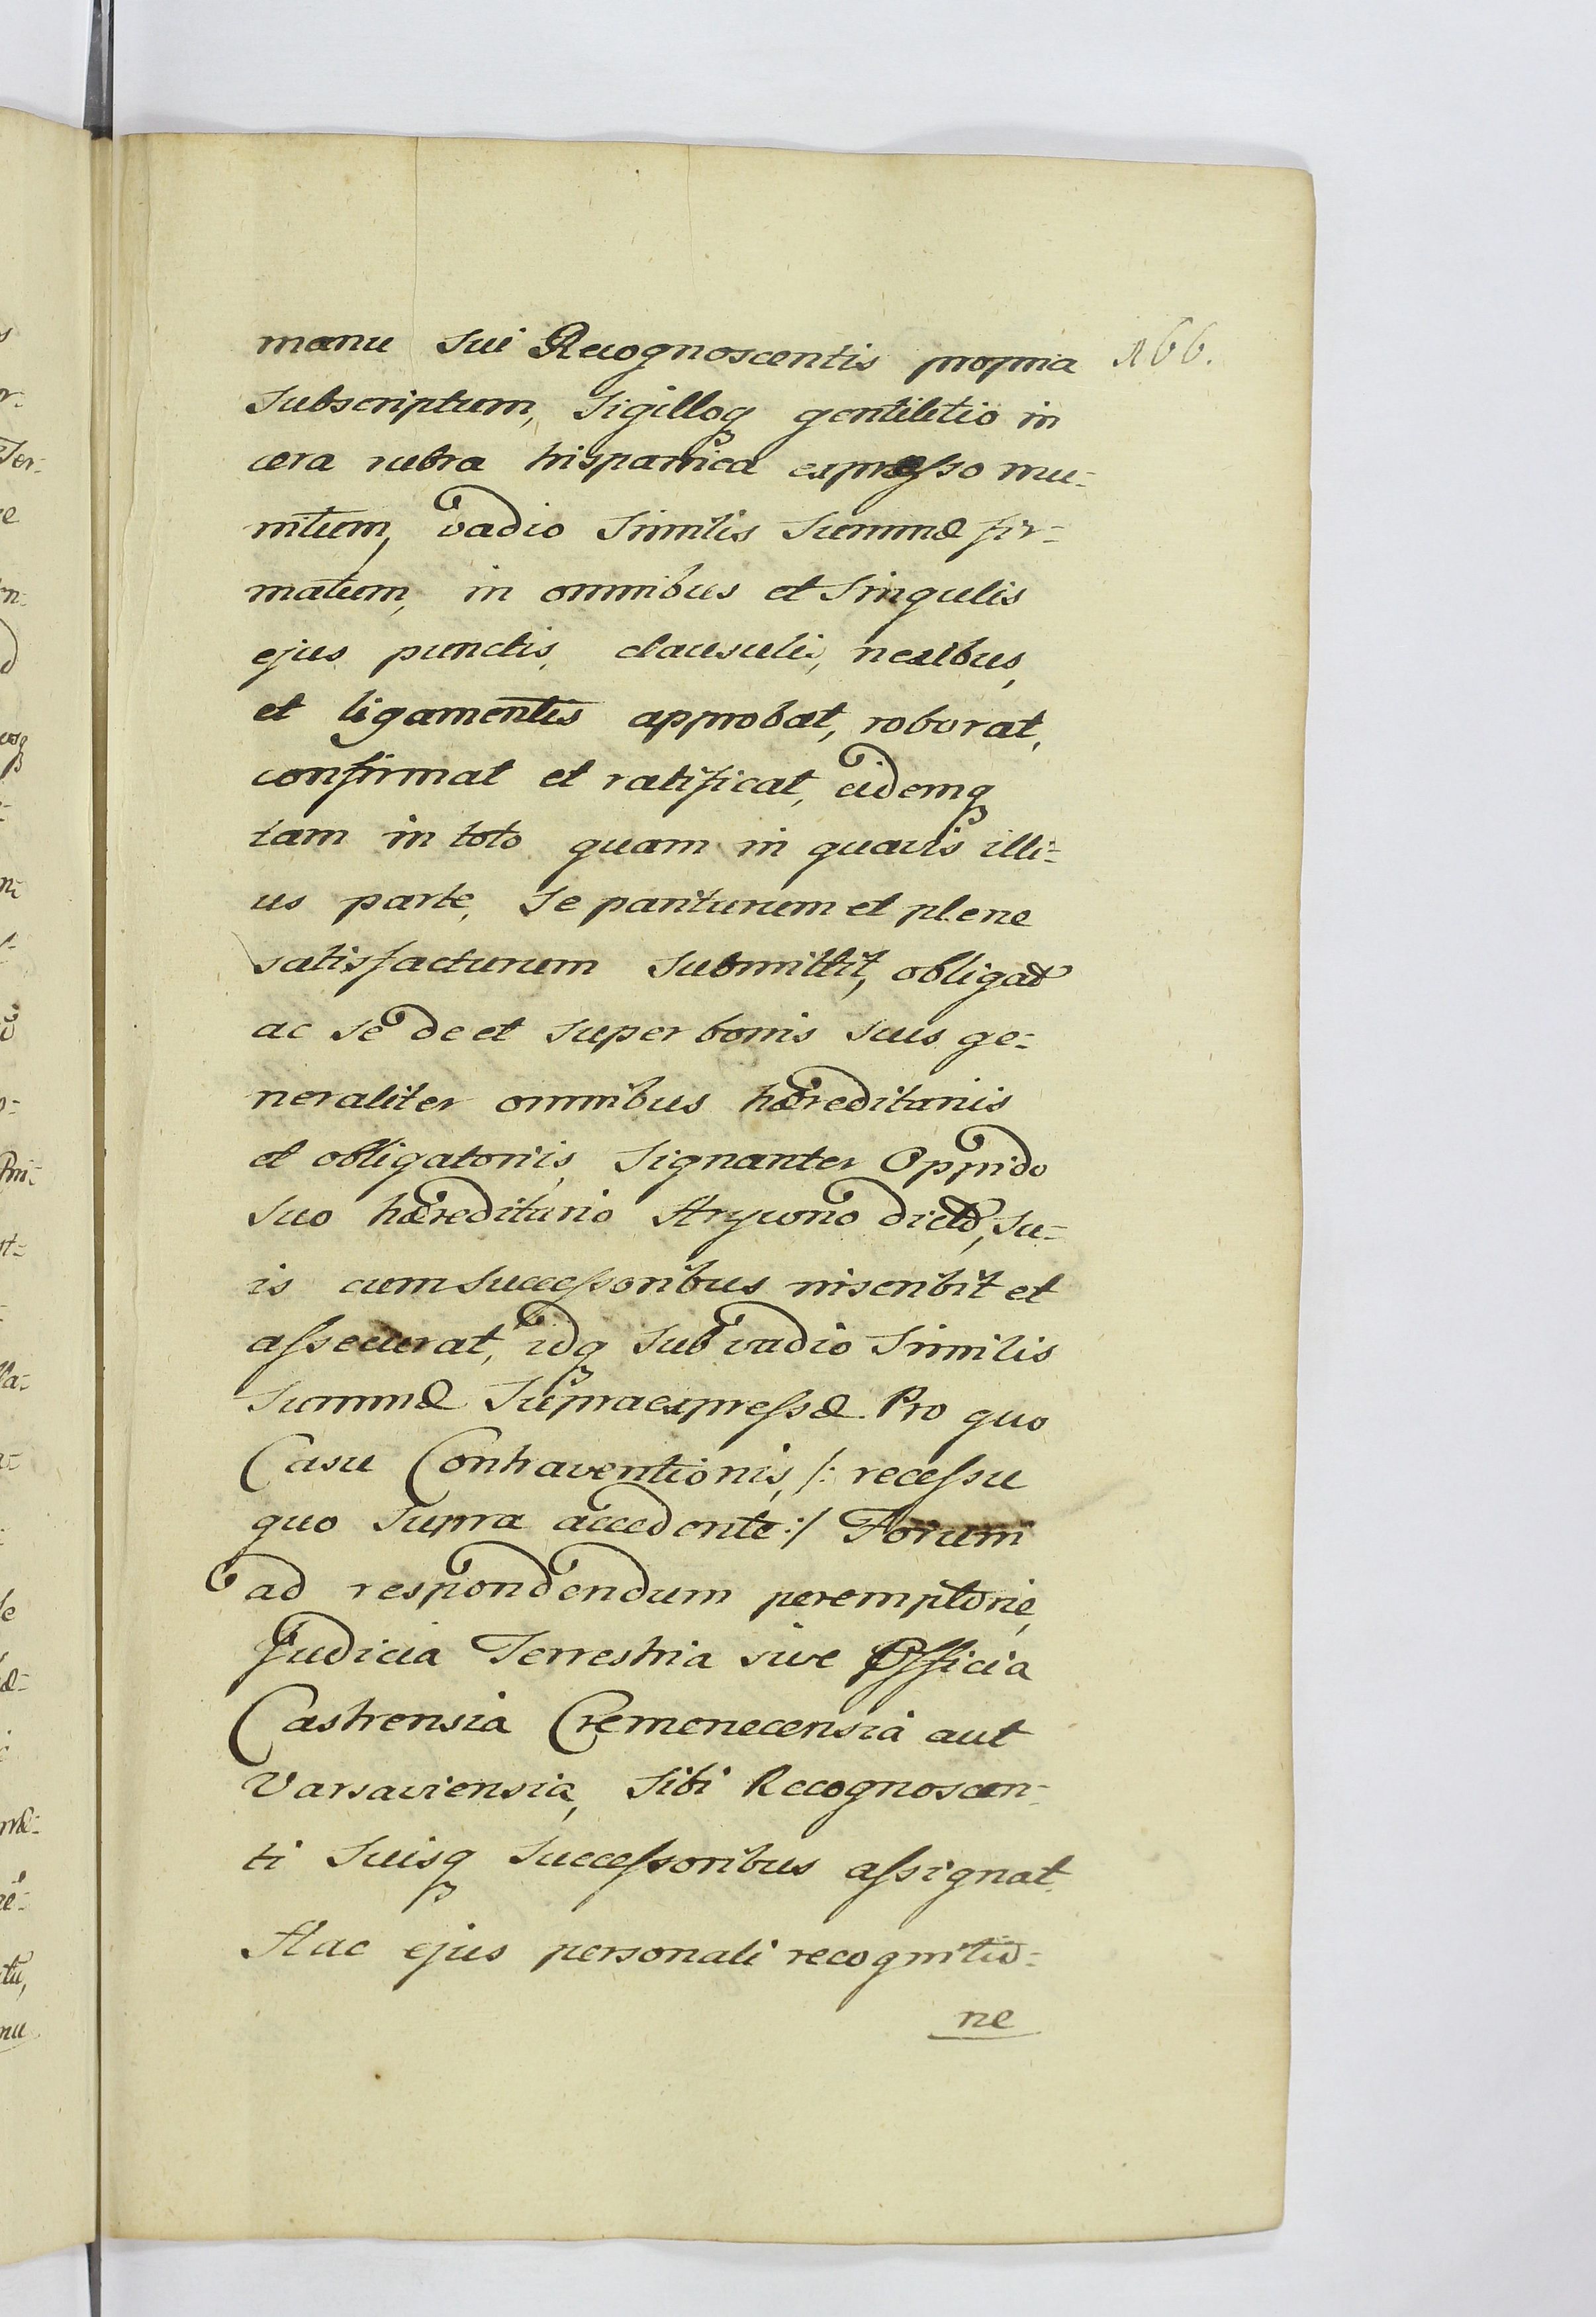 manu sui Recognoscentis propria 166.
subscriptum, sigilloq gentilitio in
cera rubra hispanica expresso mu-
nitum, vadio similis summæ fir-
matum, in omnibus et singulis
ejus punctis, clausulis, nexibus,
et ligamentis approbat, roborat,
confirmat et ratificat, eidemq
tam in toto quam in quavis illi-
us parte, se pariturum et plene
satisfacturum submittit, obligat
ac se de et super bonis suis ge-
neraliter omnibus hæreditariis
et obligatoriis, signanter Oppido
suo hæreditario dicto, su-
is cum successoribus inscribit et
assecurat, idq sub vadio similis
summæ supraexpressæ. Pro quo
Casu Contraventionis, /: recessu
quo supra accedente :/ Forum
ad respondendum peremptorie,
Judicia Terrestria sive Officia
Castrensia Cremenecensia aut
Varsaviensia, sibi Recognoscen-
ti suisq successoribus assignat.
Hac ejus personali recognitio-
ne